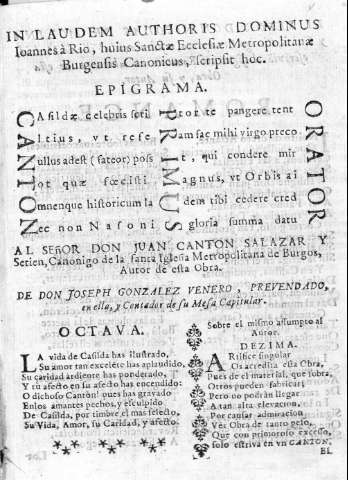 IN LAUDEM AUTHORIS DOMINUS
Ioannes à Rio, huius Sanctæ Ecclesiæ Metropolitanæ
Burgensis Canonicus, scripsit hoc.
EPIGRAMA.
CANTON PRIMUS ORATOR
Asildæ celebris scri tor te pangere tent
ltius, vt refe am sac mihi virgo preco
ullus adest (fateor) poss t, qui condere mir
ot quæ fœcisti agnus, vt Orbis ai
mnenque historicum la dem tibi cedere cred
ec non Nasoni gloria summa datu
AL SEÑOR DON JUAN CANTON SALAZAR Y
Setien, Canonigo de la santa Iglesia Metropolitana de Burgos,
Autor de esta Obra.
DE DON JOSEPH GONZALEZ VENERO, PREVENDADO,
en ella, y Contador de su Mesa Capitular.
OCTAVA.
LA vida de Casilda has ilustrado,
Su amor tan excelente has aplaudido,
Su caridad ardiente has ponderado,
Y tu afecto en su afecto has encendido:
O dichoso Canton! pues has gravado
En los amantes pechos, y esculpido
De Casilda, por timbre el mas selecto,
Su Vida, Amor, su Caridad, y afecto.
Sobre el mismo assumpto al
Autor.
DEZIMA.
ARtifice singular
Os acredita esta Obra,
Pues de el material, que sobra,
Otros pueden fabricar;
Pero no podràn llegar
A tan alta elevacion,
Por causar admiracion
Vèr Obra de tanto peso,
Que con primoroso excesso,
solo estriva en vn CANTON.
EL